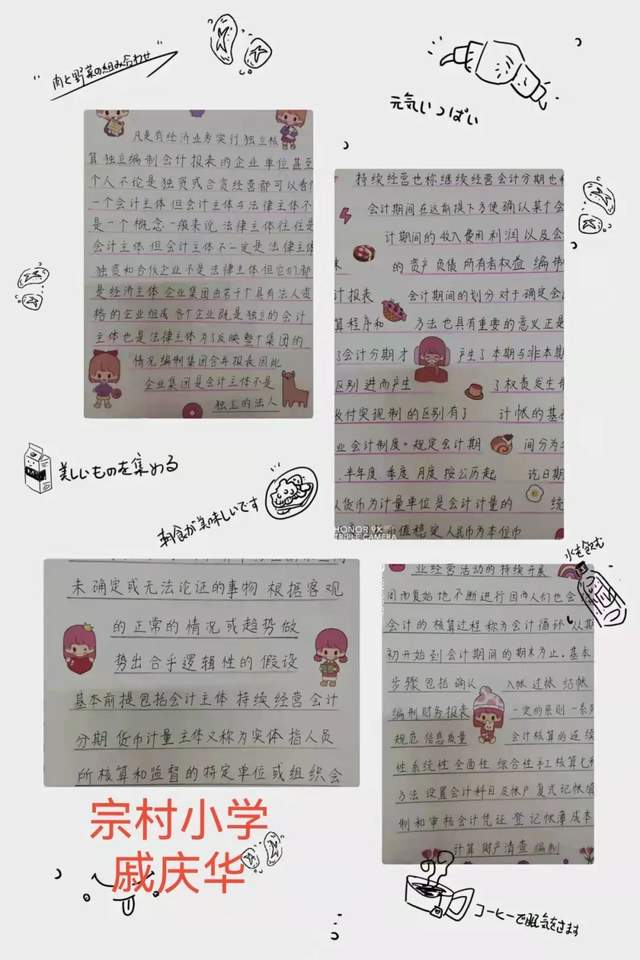 肉と野菜の組み合わせ
元気いっぱい
凡是有经济业务实行独立核
算独立编制会计报表的企业单位甚至
个人不论是独资或合资经营都可以看作
一个会计主体但会计主体与法律主体不
是一个概念一般来说法律主体往往是
会计主体但会计主体不一定是法律主体
独资和合伙企业不是法律主体但它们都
是经济主体企业集团由若干个具有法人资
格的企业组成各个企业既是独立的会计
主体也是法律主体为了反映整个集团的
情况编制集团合并报表因此
企业集团是会计主体不是
独立的法人
持续经营也称继续经营会计分期也
会计期间在这前提下方便确认某个会
计期间的收入费用利润以及会
的资产负债所有者权益编
计报表 会计期间的划分对于确定会
算程序和 方法也具有重要的意义正是
了会计分期才 产生了本期与非本期
区别进而产生 了权责发生
收付实现制的区别有了 计帐的基
业会计制度规定会计期 间分为
半年度季度月度按公历起 讫日期
货币为计量单位是会计计量的 统
币值稳定人民币为本位币
HONOR 9X
TRIPLE CAMERA
美しいものを集める
朝食が美味しいです
未确定或无法论证的事物根据客观
的正常的情况或趋势做
势出合乎逻辑性的假设
基本前提包括会计主体持续经营会计
分期货币计量主体又称为实体指人员
所核算和监督的特定单位或组织会
业经营活动的持续开展
周而复始地不断进行因而人们也会
会计的核算过程称为会计循环从期
初开始到会计期间的期末为止基本
步骤包括确认 入帐过帐结帐
编制财务报表 一定的原则一系
规范信息质量 会计核算的连续
性系统性全面性综合性和核算七
方法设置会计科目及帐户复式记帐
制和审核会计凭证登记帐簿成本
计算财产清查编制
宗村小学
戚庆华
コーヒーで眠気をさます